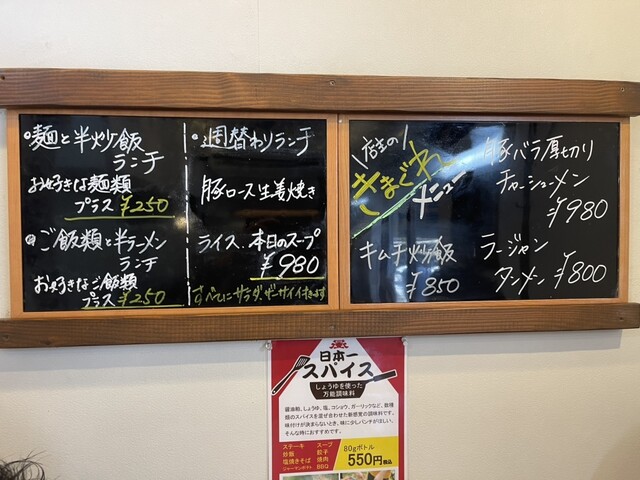 •麺と半炒飯
ランチ
お好きな麺類
プラス ¥250
•ご飯類と半ラーメン
ランチ
お好きなご飯類
プラス ¥250
•週替わりランチ
豚ロース生姜焼き
ライス、本日のスープ
¥980
すべてにサラダ、ザーサイ付きます
店主の
きまぐれ
メニュー
豚バラ厚切り
チャーシューメン
¥980
キムチ炒飯
¥850
ラージャン
タンメン ¥800
日本一
スパイス
しょうゆを使った
万能調味料
醤油粕、しょうゆ、塩、コショウ、ガーリックなど、数種
類のスパイスを混ぜ合わせた新感覚の調味料です。
味付けが決まらないとき、味に少しパンチがほしい、
そんな時におすすめです。
ステーキ スープ
炒飯 餃子
塩焼きそば 焼肉
ジャーマンポテト BBQ
80gボトル
550円税込